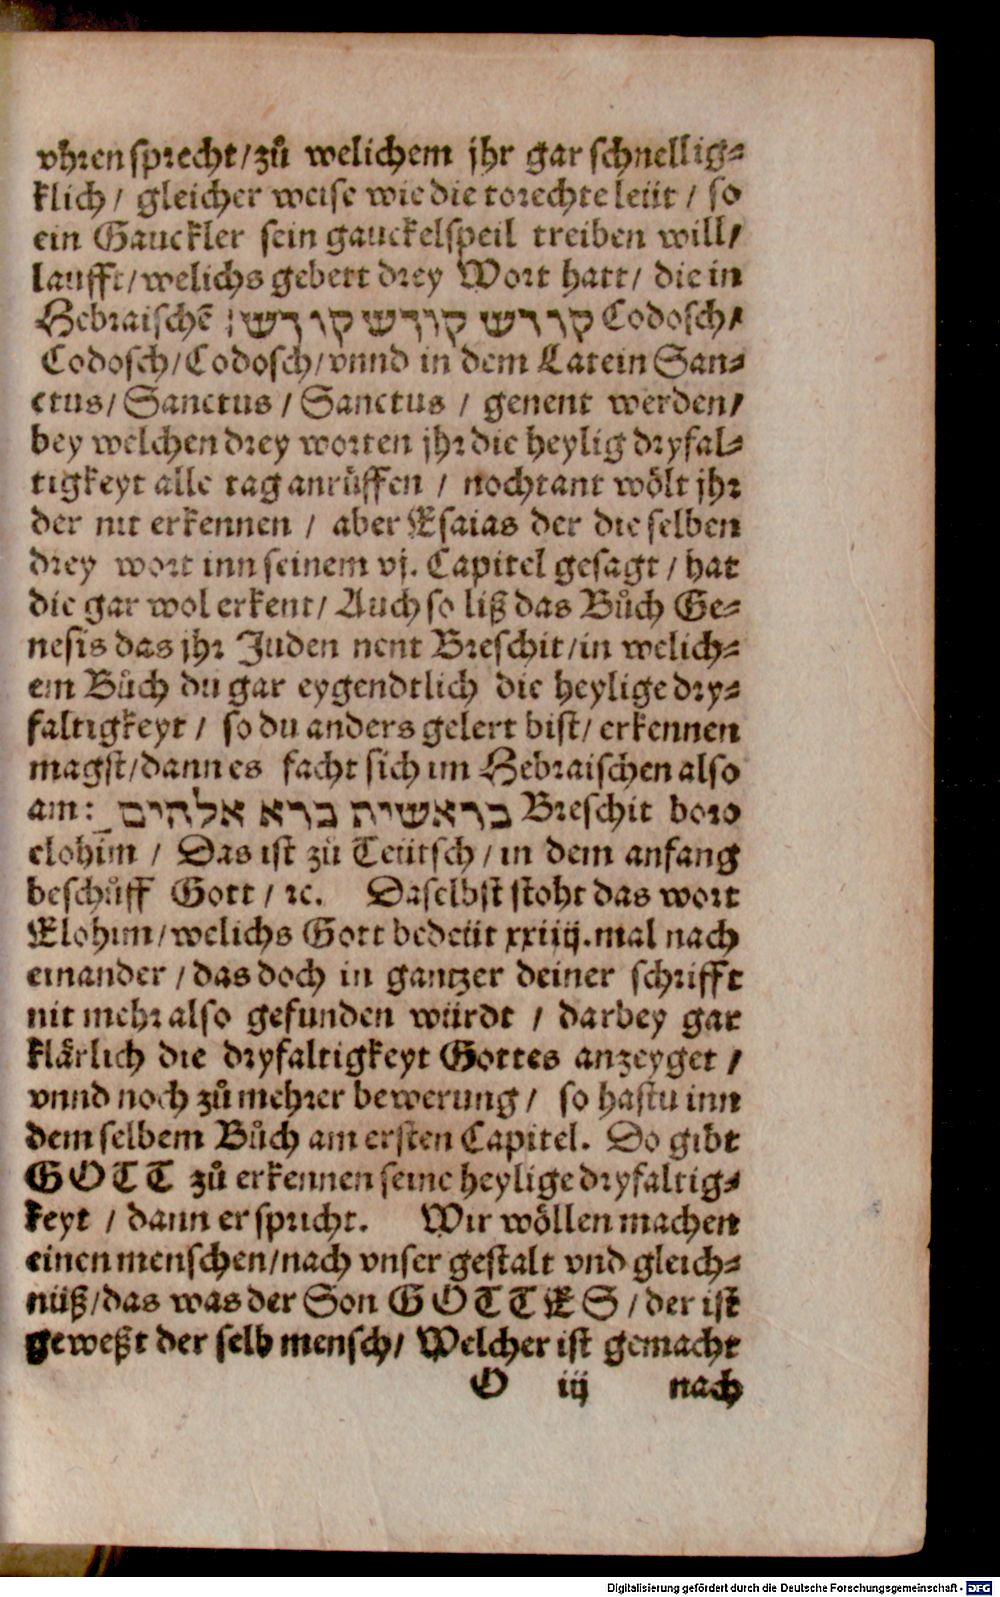 vhren sprecht / zů welichem jhr gar schnellig⸗
klich / gleicher weise wie die torechte leüt / so
ein Gauckler sein gauckelspeil treiben will /
laufft / welichs gebett drey Wort hatt / die in
Hebraischē קודש קודש קודש׃ Codosch /
Codosch / Codosch / vnnd in dem Latein San⸗
ctus / Sanctus / Sanctus / genent werden /
bey welchen drey worten jhr die heylig dryfal⸗
tigkeyt alle tag anrüffen / nochtant wölt jhr
der nit erkennen / aber Esaias der die selben
drey wort inn seinem vj. Capitel gesagt / hat
die gar wol erkent / Auch so liß das Bůch Ge⸗
nesis das jhr Juden nent Breschit / in welich⸗
em Bůch du gar eygendtlich die heylige dry⸗
faltigkeyt / so du anders gelert bist / erkennen
magst / dann es facht sich im Hebraischen also
am: בראשיה ברא אלהים Breschit boro
elohim / Das ist zů Teütsch / in dem anfang
beschůff Gott / ꝛc. Daselbst stoht das wort
Elohim / welichs Gott bedeüt xxiiij. mal nach
einander / das doch in gantzer deiner schrifft
nit mehr also gefunden würdt / darbey gar
klärlich die dryfaltigkeyt Gottes anzeyget /
vnnd noch zů mehrer bewerung / so hastu inn
dem selbem Bůch am ersten Capitel. Do gibt
GOTT zů erkennen seine heylige dryfaltig⸗
keyt / dann er spricht. Wir wöllen machen
einen menschen / nach vnser gestalt vnd gleich⸗
nüß / das was der Son GOTTES / der ist
geweßt der selb mensch / Welcher ist gemacht
O iij nach
Digitalisierung gefördert durch die Deutsche Forschungsgemeinschaft - DFG